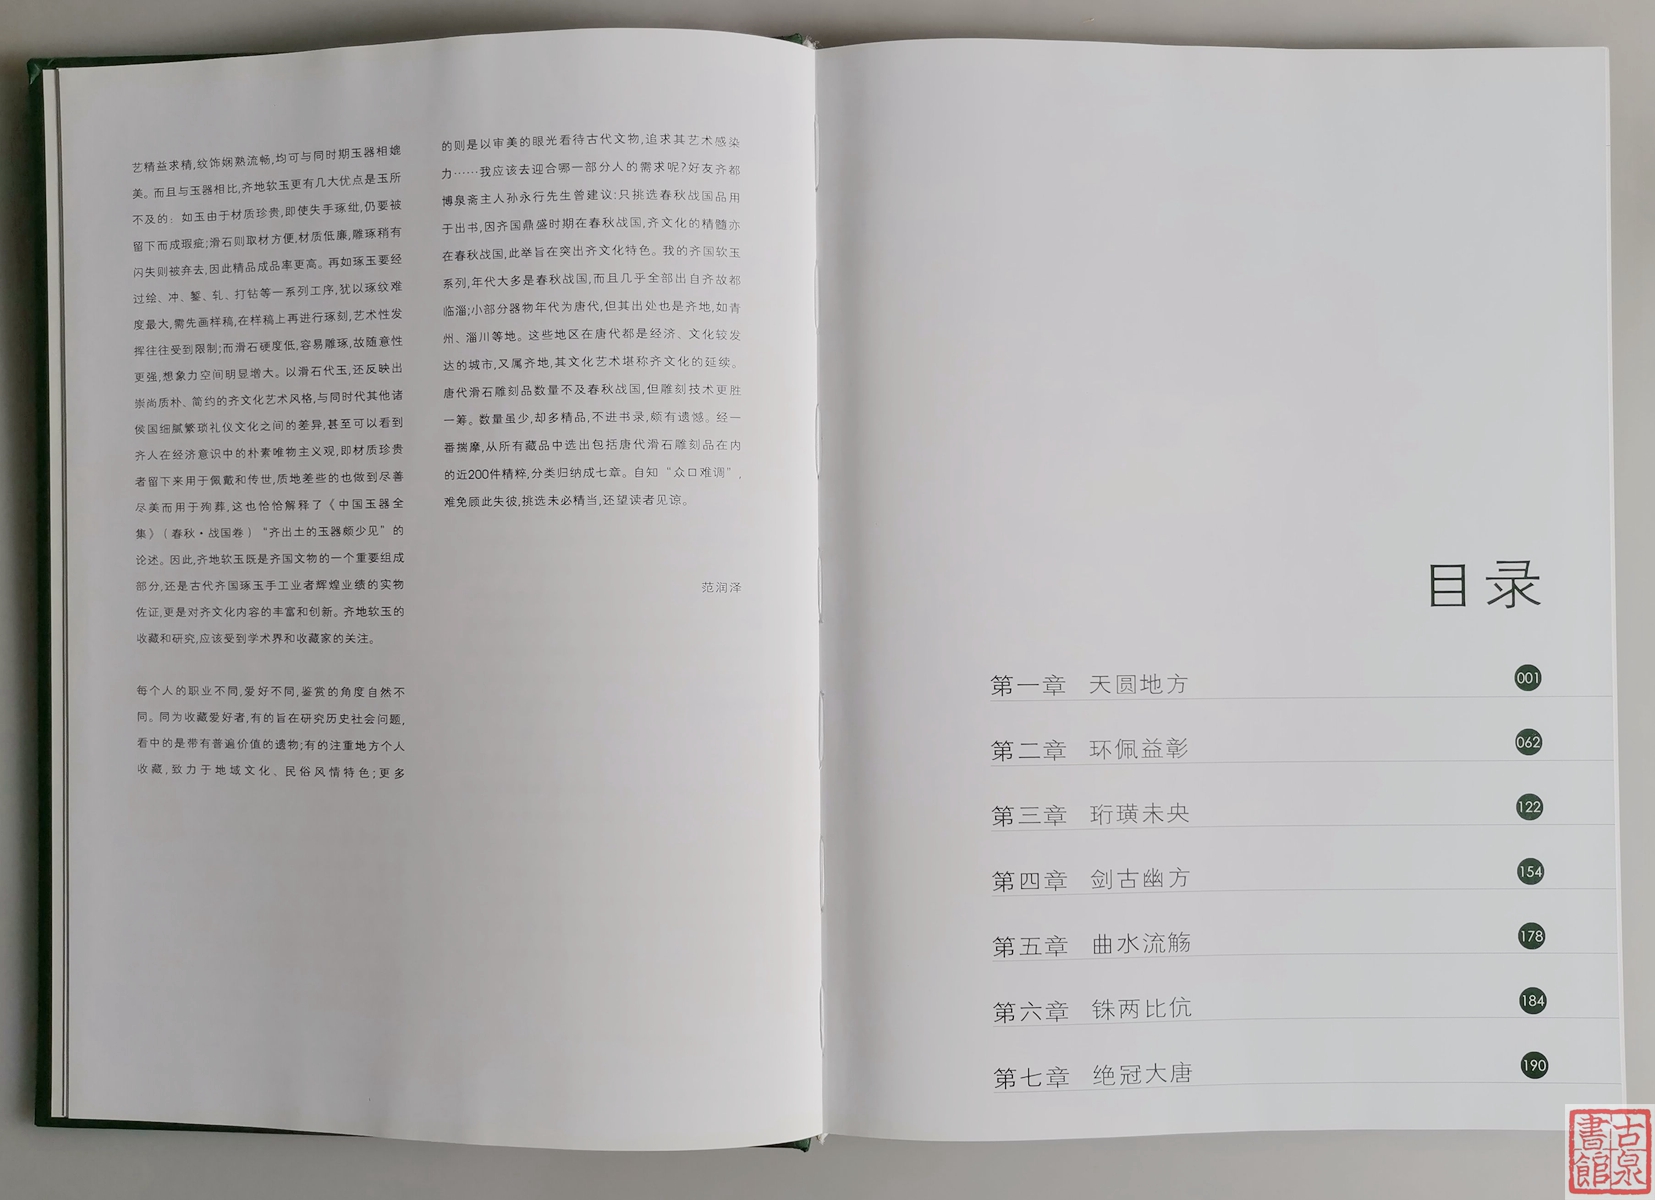 艺精益求精,纹饰娴熟流畅,均可与同时期玉器相媲
美。而且与玉器相比,齐地软玉更有几大优点是玉所
不及的：如玉由于材质珍贵,即使失手琢纰,仍要被
留下而成瑕疵;滑石则取材方便,材质低廉,雕琢稍有
闪失则被弃去,因此精品成品率更高。再如琢玉要经
过绘、冲、錾、轧、打钻等一系列工序,犹以琢纹难
度最大,需先画样稿,在样稿上再进行琢刻,艺术性发
挥往往受到限制;而滑石硬度低,容易雕琢,故随意性
更强,想象力空间明显增大。以滑石代玉,还反映出
崇尚质朴、简约的齐文化艺术风格,与同时代其他诸
侯国细腻繁琐礼仪文化之间的差异,甚至可以看到
齐人在经济意识中的朴素唯物主义观,即材质珍贵
者留下来用于佩戴和传世,质地差些的也做到尽善
尽美而用于殉葬,这也恰恰解释了《中国玉器全
集》（春秋·战国卷）“齐出土的玉器颇少见”的
论述。因此,齐地软玉既是齐国文物的一个重要组成
部分,还是古代齐国琢玉手工业者辉煌业绩的实物
佐证,更是对齐文化内容的丰富和创新。齐地软玉的
收藏和研究,应该受到学术界和收藏家的关注。
每个人的职业不同,爱好不同,鉴赏的角度自然不
同。同为收藏爱好者,有的旨在研究历史社会问题,
看中的是带有普遍价值的遗物;有的注重地方个人
收藏,致力于地域文化、民俗风情特色;更多
的则是以审美的眼光看待古代文物,追求其艺术感染
力……我应该去迎合哪一部分人的需求呢?好友齐都
博泉斋主人孙永行先生曾建议:只挑选春秋战国品用
于出书,因齐国鼎盛时期在春秋战国,齐文化的精髓亦
在春秋战国,此举旨在突出齐文化特色。我的齐国软玉
系列,年代大多是春秋战国,而且几乎全部出自齐故都
临淄;小部分器物年代为唐代,但其出处也是齐地,如青
州、淄川等地。这些地区在唐代都是经济、文化较发
达的城市,又属齐地,其文化艺术堪称齐文化的延续。
唐代滑石雕刻品数量不及春秋战国,但雕刻技术更胜
一筹。数量虽少,却多精品,不进书录,颇有遗憾。经一
番揣摩,从所有藏品中选出包括唐代滑石雕刻品在内
的近200件精粹,分类归纳成七章。自知“众口难调”,
难免顾此失彼,挑选未必精当,还望读者见谅。
范润泽
目录
第一章 天圆地方 001
第二章 环佩益彰 062
第三章 珩璜未央 122
第四章 剑古幽方 154
第五章 曲水流觞 178
第六章 铢两比伉 184
第七章 绝冠大唐 190
古泉
書館